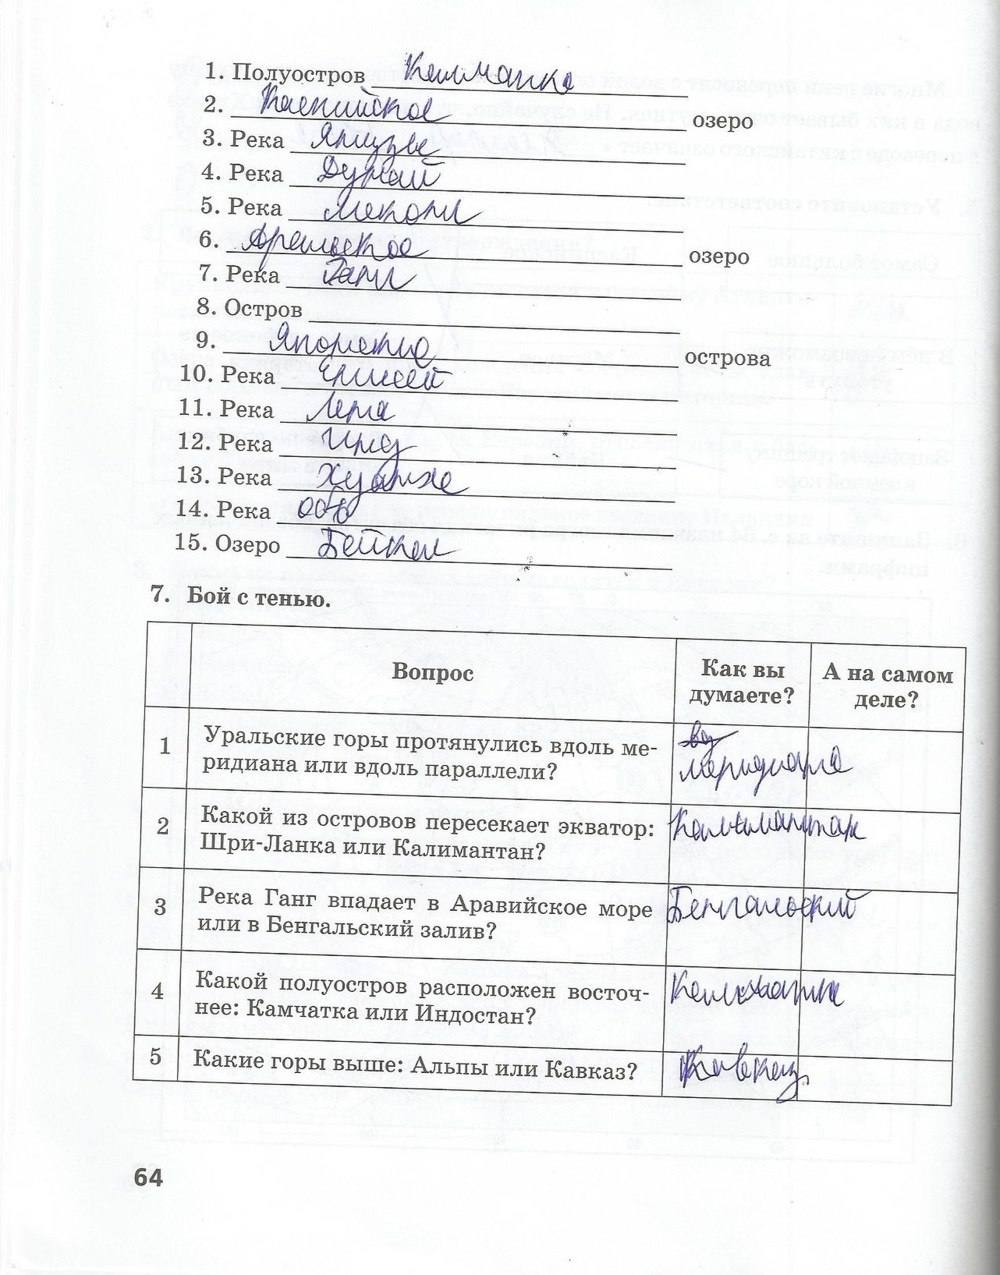 1. Полуостров Камчатка
2. Каспийское озеро
3. Река Янцзы
4. Река Дунай
5. Река Меконг
6. Аральское озеро
7. Река Ганг
8. Остров
9. Японские острова
10. Река Енисей
11. Река Лена
12. Река Инд
13. Река Хуанхе
14. Река Обь
15. Озеро Бейкал
7. Бой с тенью.
Вопрос
Как вы думаете?
А на самом деле?
1
Уральские горы протянулись вдоль ме-
ридиана или вдоль параллели?
меридиана
2
Какой из островов пересекает экватор:
Шри-Ланка или Калимантан?
Калимантан
3
Река Ганг впадает в Аравийское море
или в Бенгальский залив?
Бенгальский
4
Какой полуостров расположен восточ-
нее: Камчатка или Индостан?
Камчатка
5
Какие горы выше: Альпы или Кавказ?
Кавказ
64